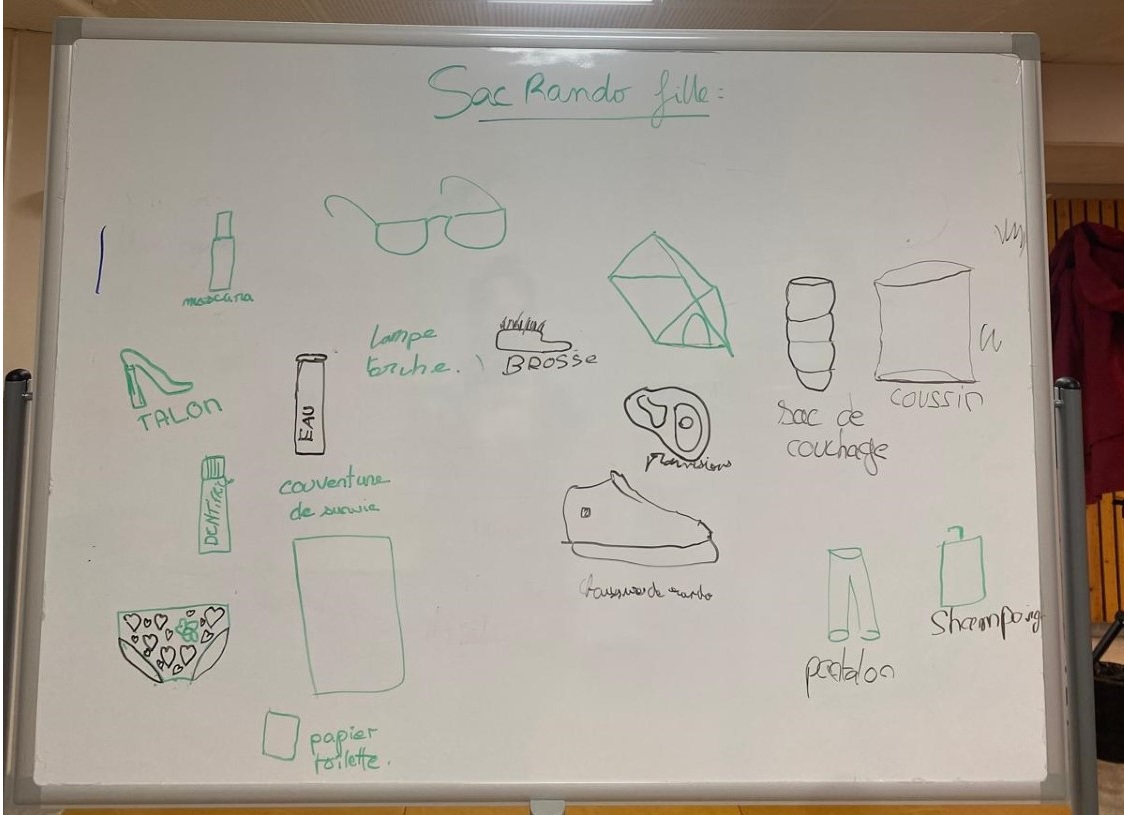 Sac Rando fille :
mascara
Lampe
torche.
BROSSE
TALON
EAU
sac de
couchage
coussin
provisions
DENTIFRICE
couverture
de survie
chaussure de rando
pantalon
Shampoing
papier
toilette.